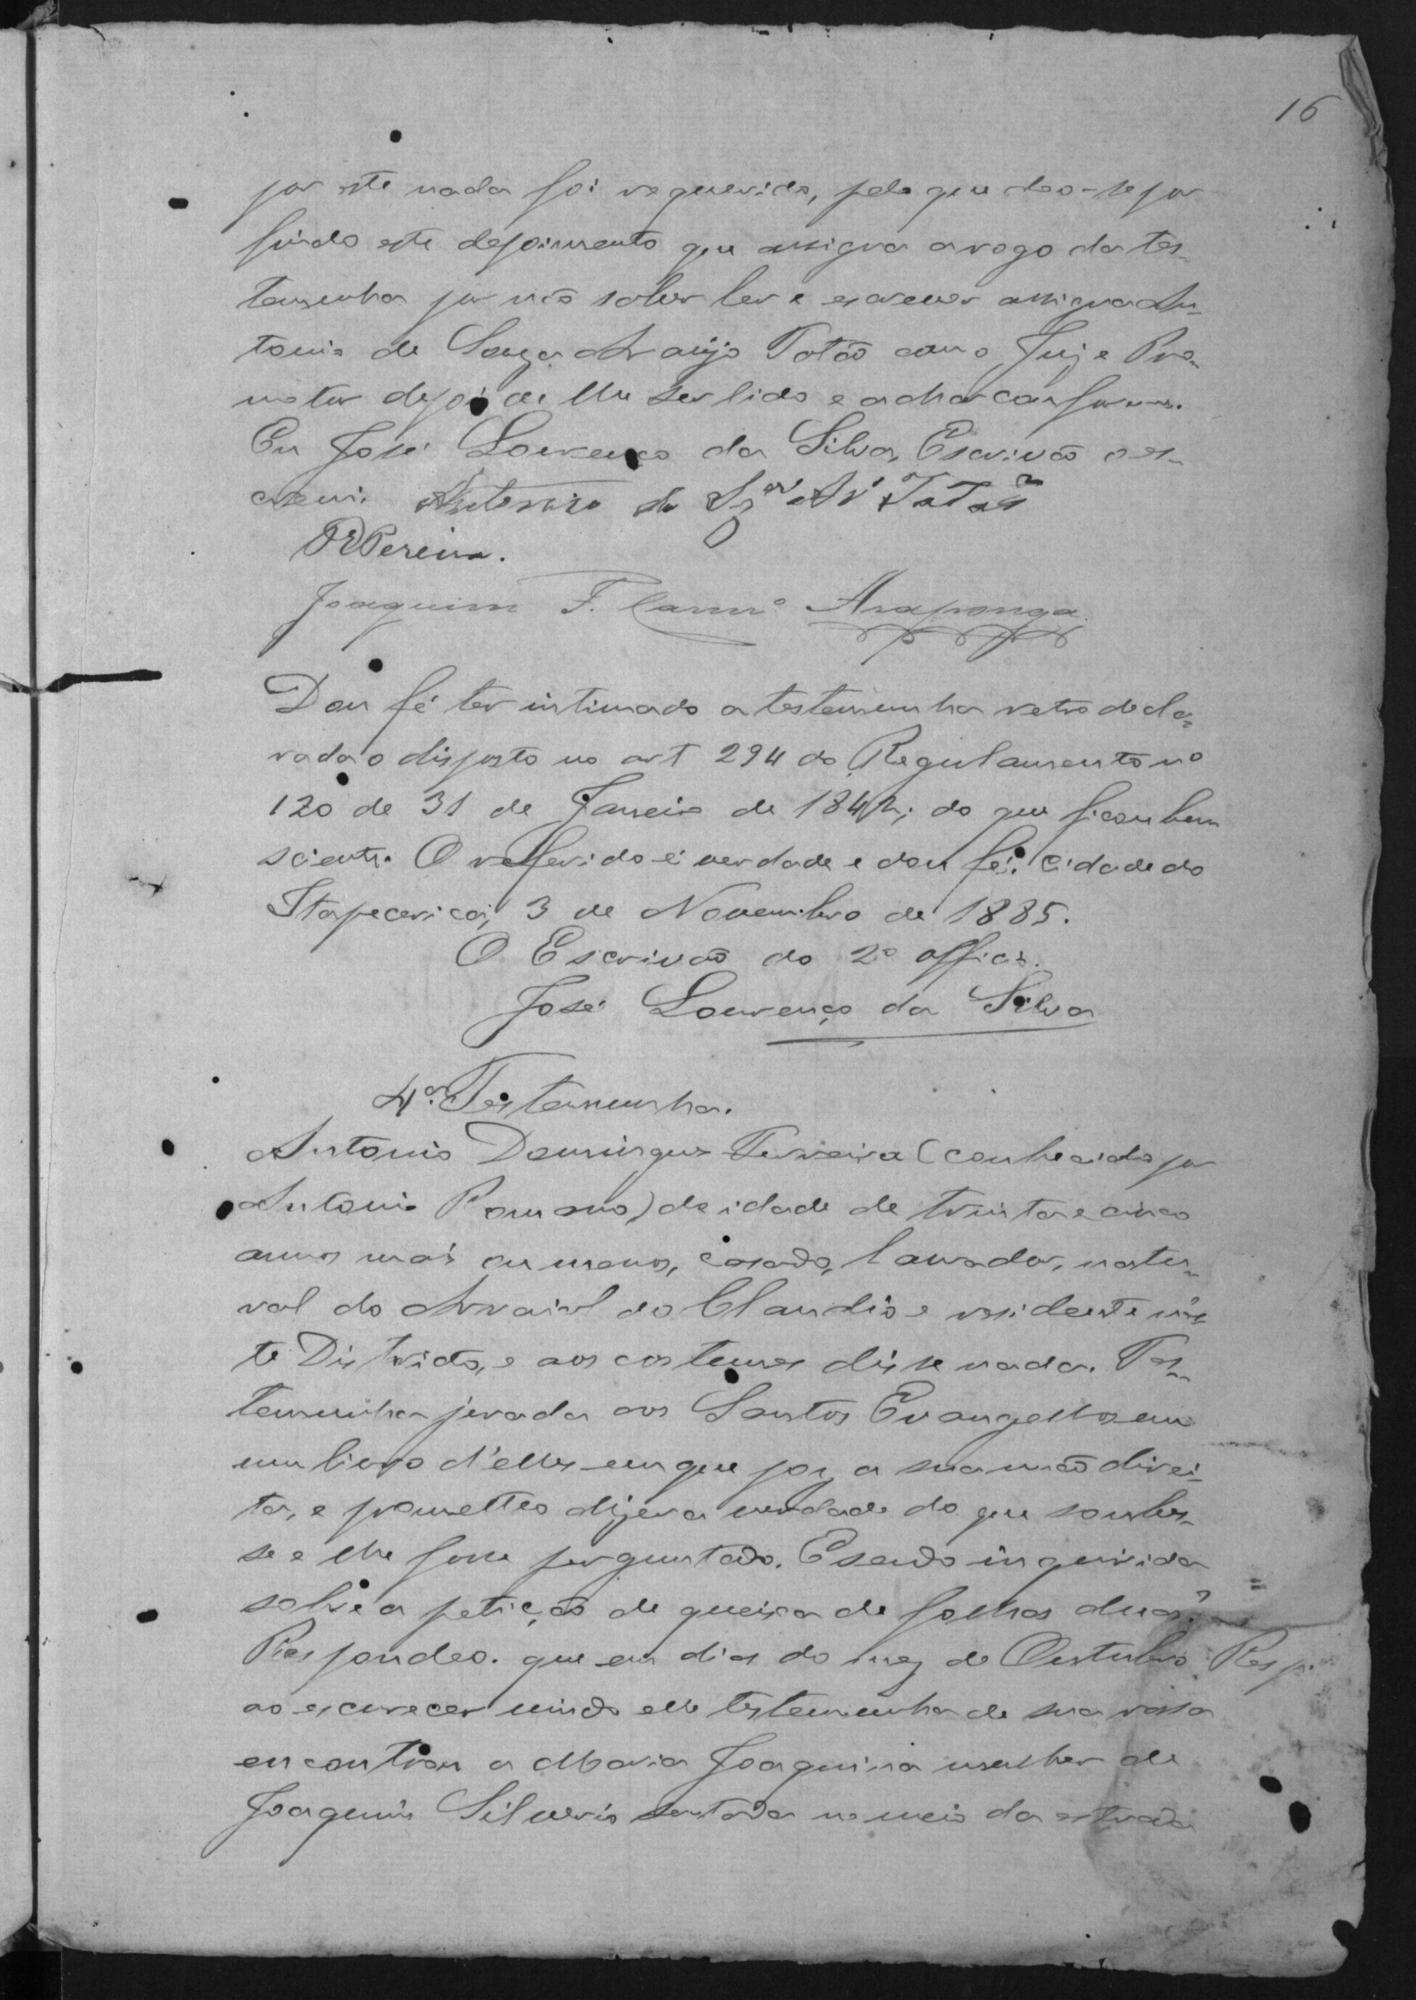 16
por este nada foi requerido, pelo que deo-se por
findo este depoimento que assigna a rogo da tes-
temunha por não saber ler e escrever assigna An-
tonio de Souza Araujo Totão com o Juiz e Pro-
motor depois de lhe ser lido e achar conforme.
Eu José Lourenço da Silva, Escrivão o es-
crevi. Antonio de Sz.ª Ar.º Tatão
Pereira.
Joaquim F. Carnr.º Araponga
Dou fé ter intimado a testemunha retro decla-
rada o disposto no art 294 do Regulamento nº
120 de 31 de Janeiro de 1842; do que ficou bem
sciente. O referido é verdade e dou fé. Cidade do
Itapecerica, 3 de Novembro de 1885.
O Escrivão do 2º officio.
José Lourenço da Silva
4ª. Testemunha.
Antonio Domingues Ferreira (conhecido por
Antonio Romano) de idade de trinta e cinco
annos mais ou menos, casado, lavrador, natu-
ral do Arraial do Claudio e residente nes-
te Districto, e aos costumes disse nada. Tes-
temunha jurada aos Santos Evangelhos em
um livro d'elles em que poz a sua mão direi-
ta, e prometteo dizer a verdade do que soubes-
se e lhe fosse perguntado. E sendo inquirida
sobre a petição de queixa de folhas duas?
Respondeo. que em dias do mez de Outubro Resp.
ao escurecer vindo elle testemunha de sua rossa
encontrou a Maria Joaquina mulher de
Joaquim Silverio sentada no meio da estrada